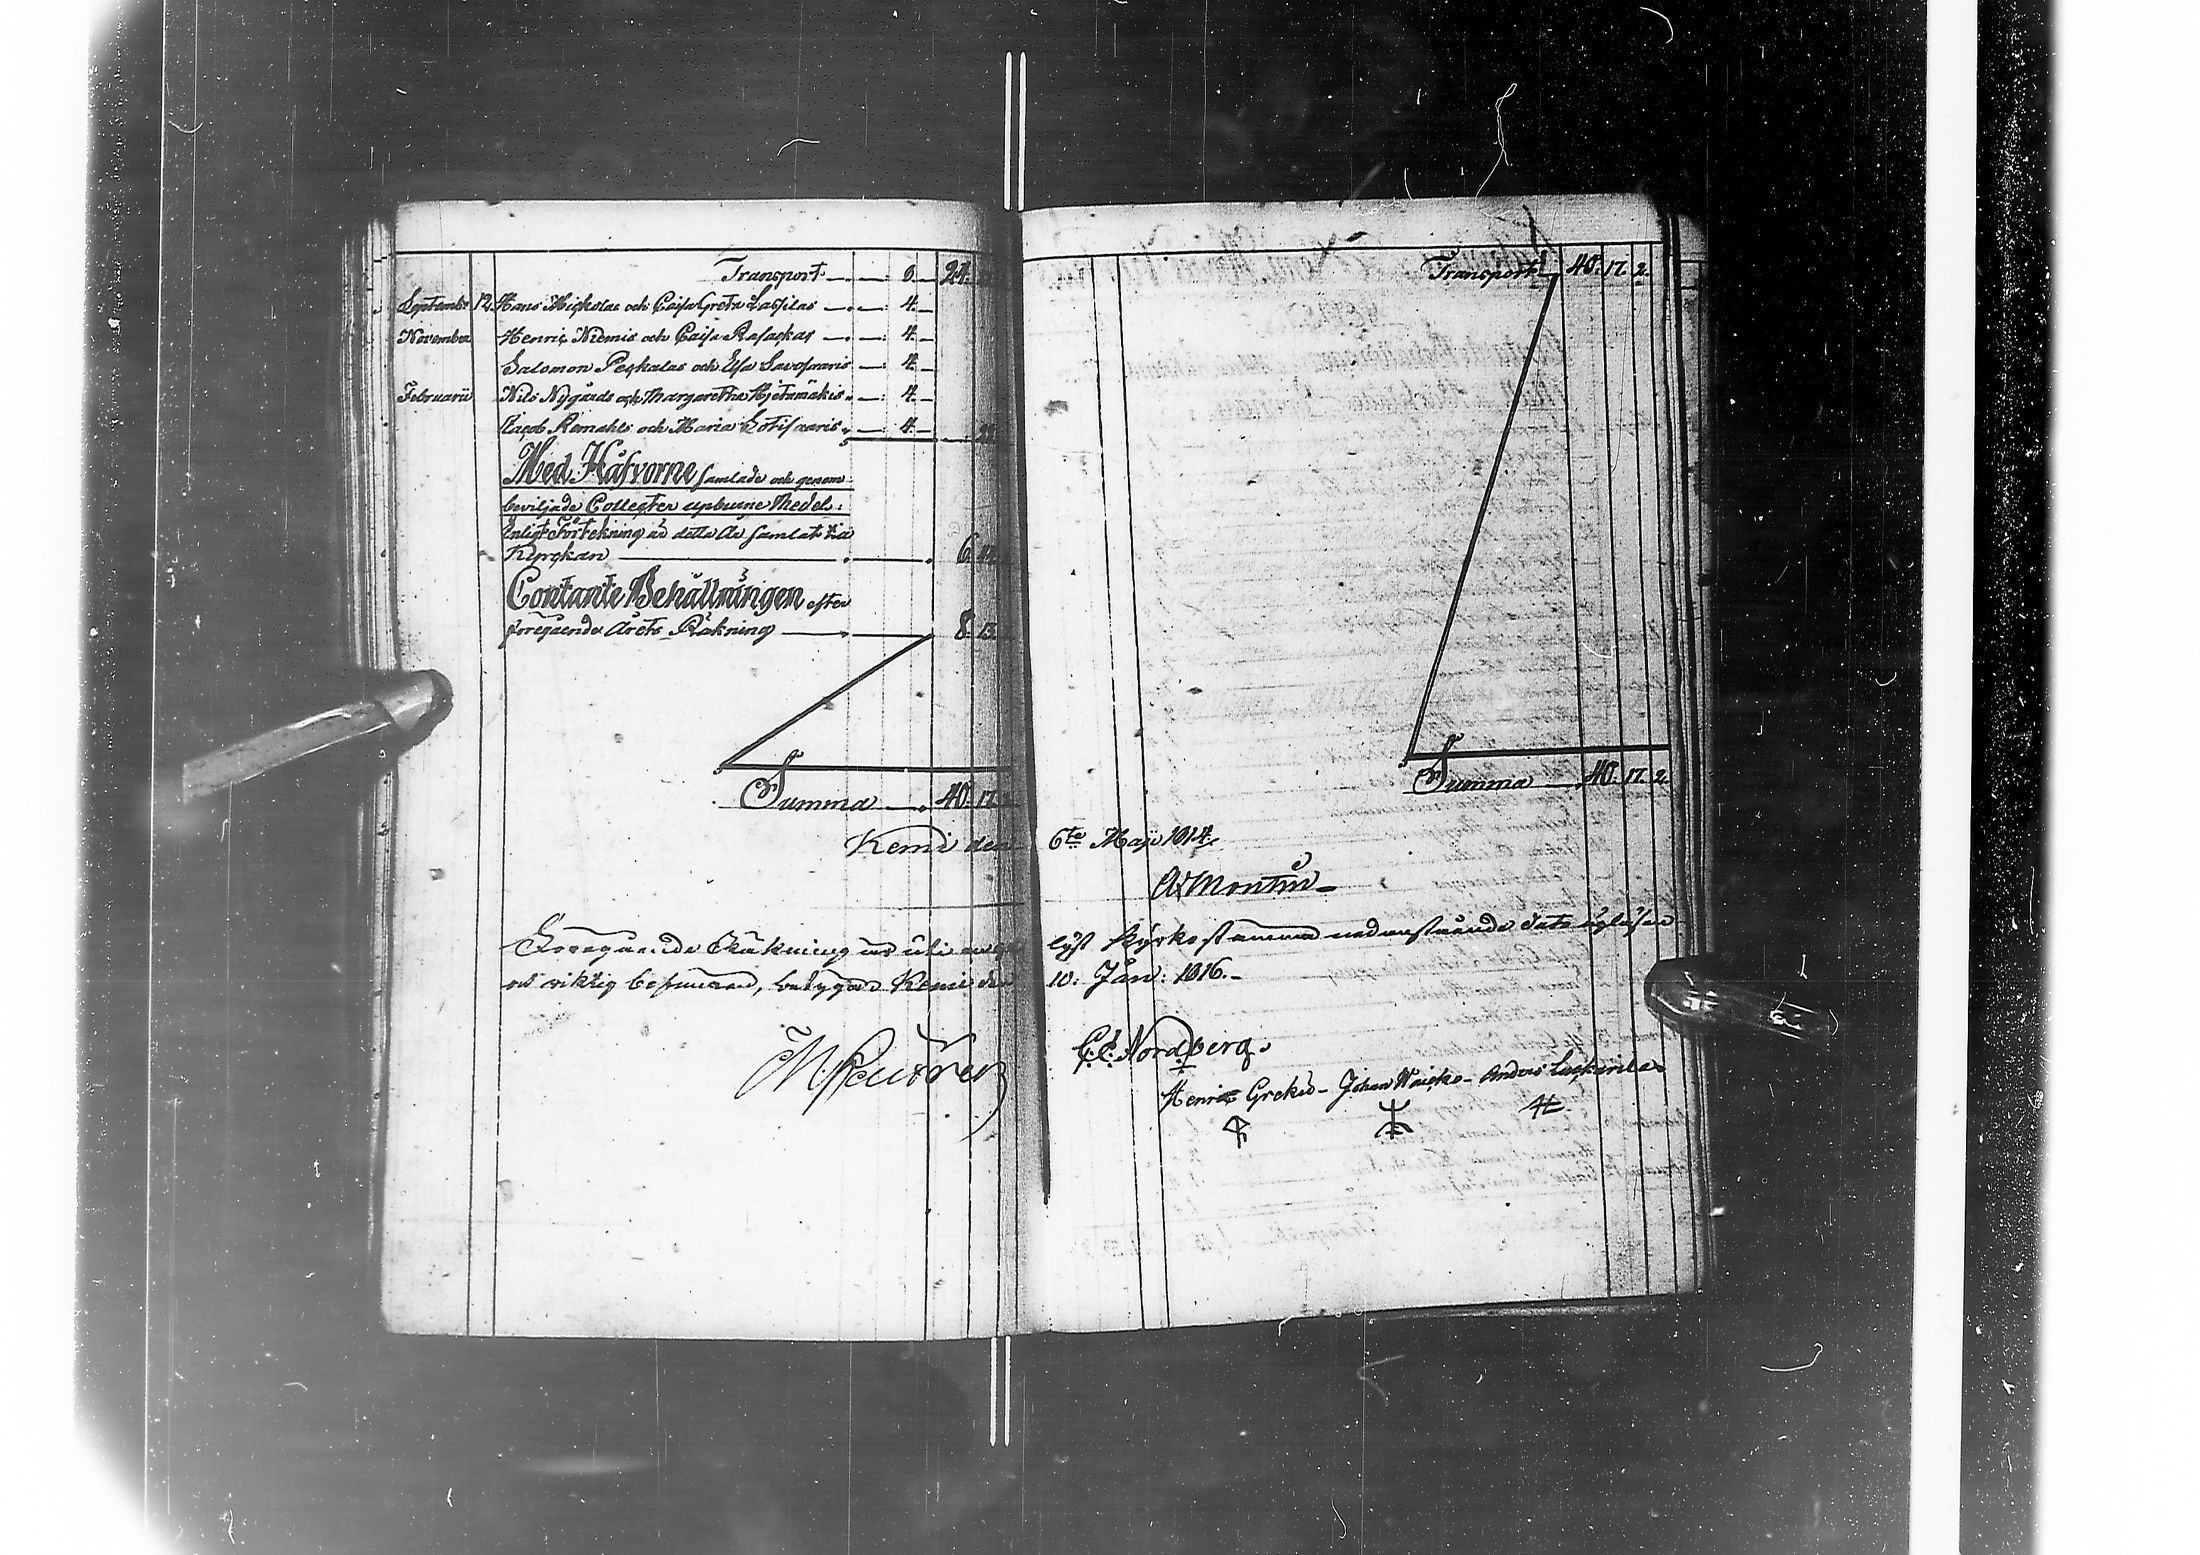 Transport 8. 24.
September 12. Hans Mickolas och Caisa Greta Lassilas 4.
November Henric Niemis och Caisa Rasackas 4.
Salomon Peckalas och Elsa Savosaaris 4.
Februarii Nils Nygårds och Margaretha Hjetamäkis 4.
Jacob Remahls och Maria Lotisaaris 4.
Med Håfvorne samlade och genom
beviljade Collecter upburne Medel:
Enligt Förtekning är detta År samlat i
Kyrckan 6.
Contante Behållningen efter
föregående Årets Räkning 8. 13.
Summa 40. 17.
Kemi den
Föregående Räkning är uti
och riktig befunnen, betygar Kemi den
Transport 40. 17. 2.
Summa 40. 17. 2.
6te Maji 1814.
And Montin
lyst Kyrkostämma nedanstående dato upläsen
10. Jan: 1816.
C. E. Nordberg.
Henric Grekus Johan Waicko Anders Luckarila